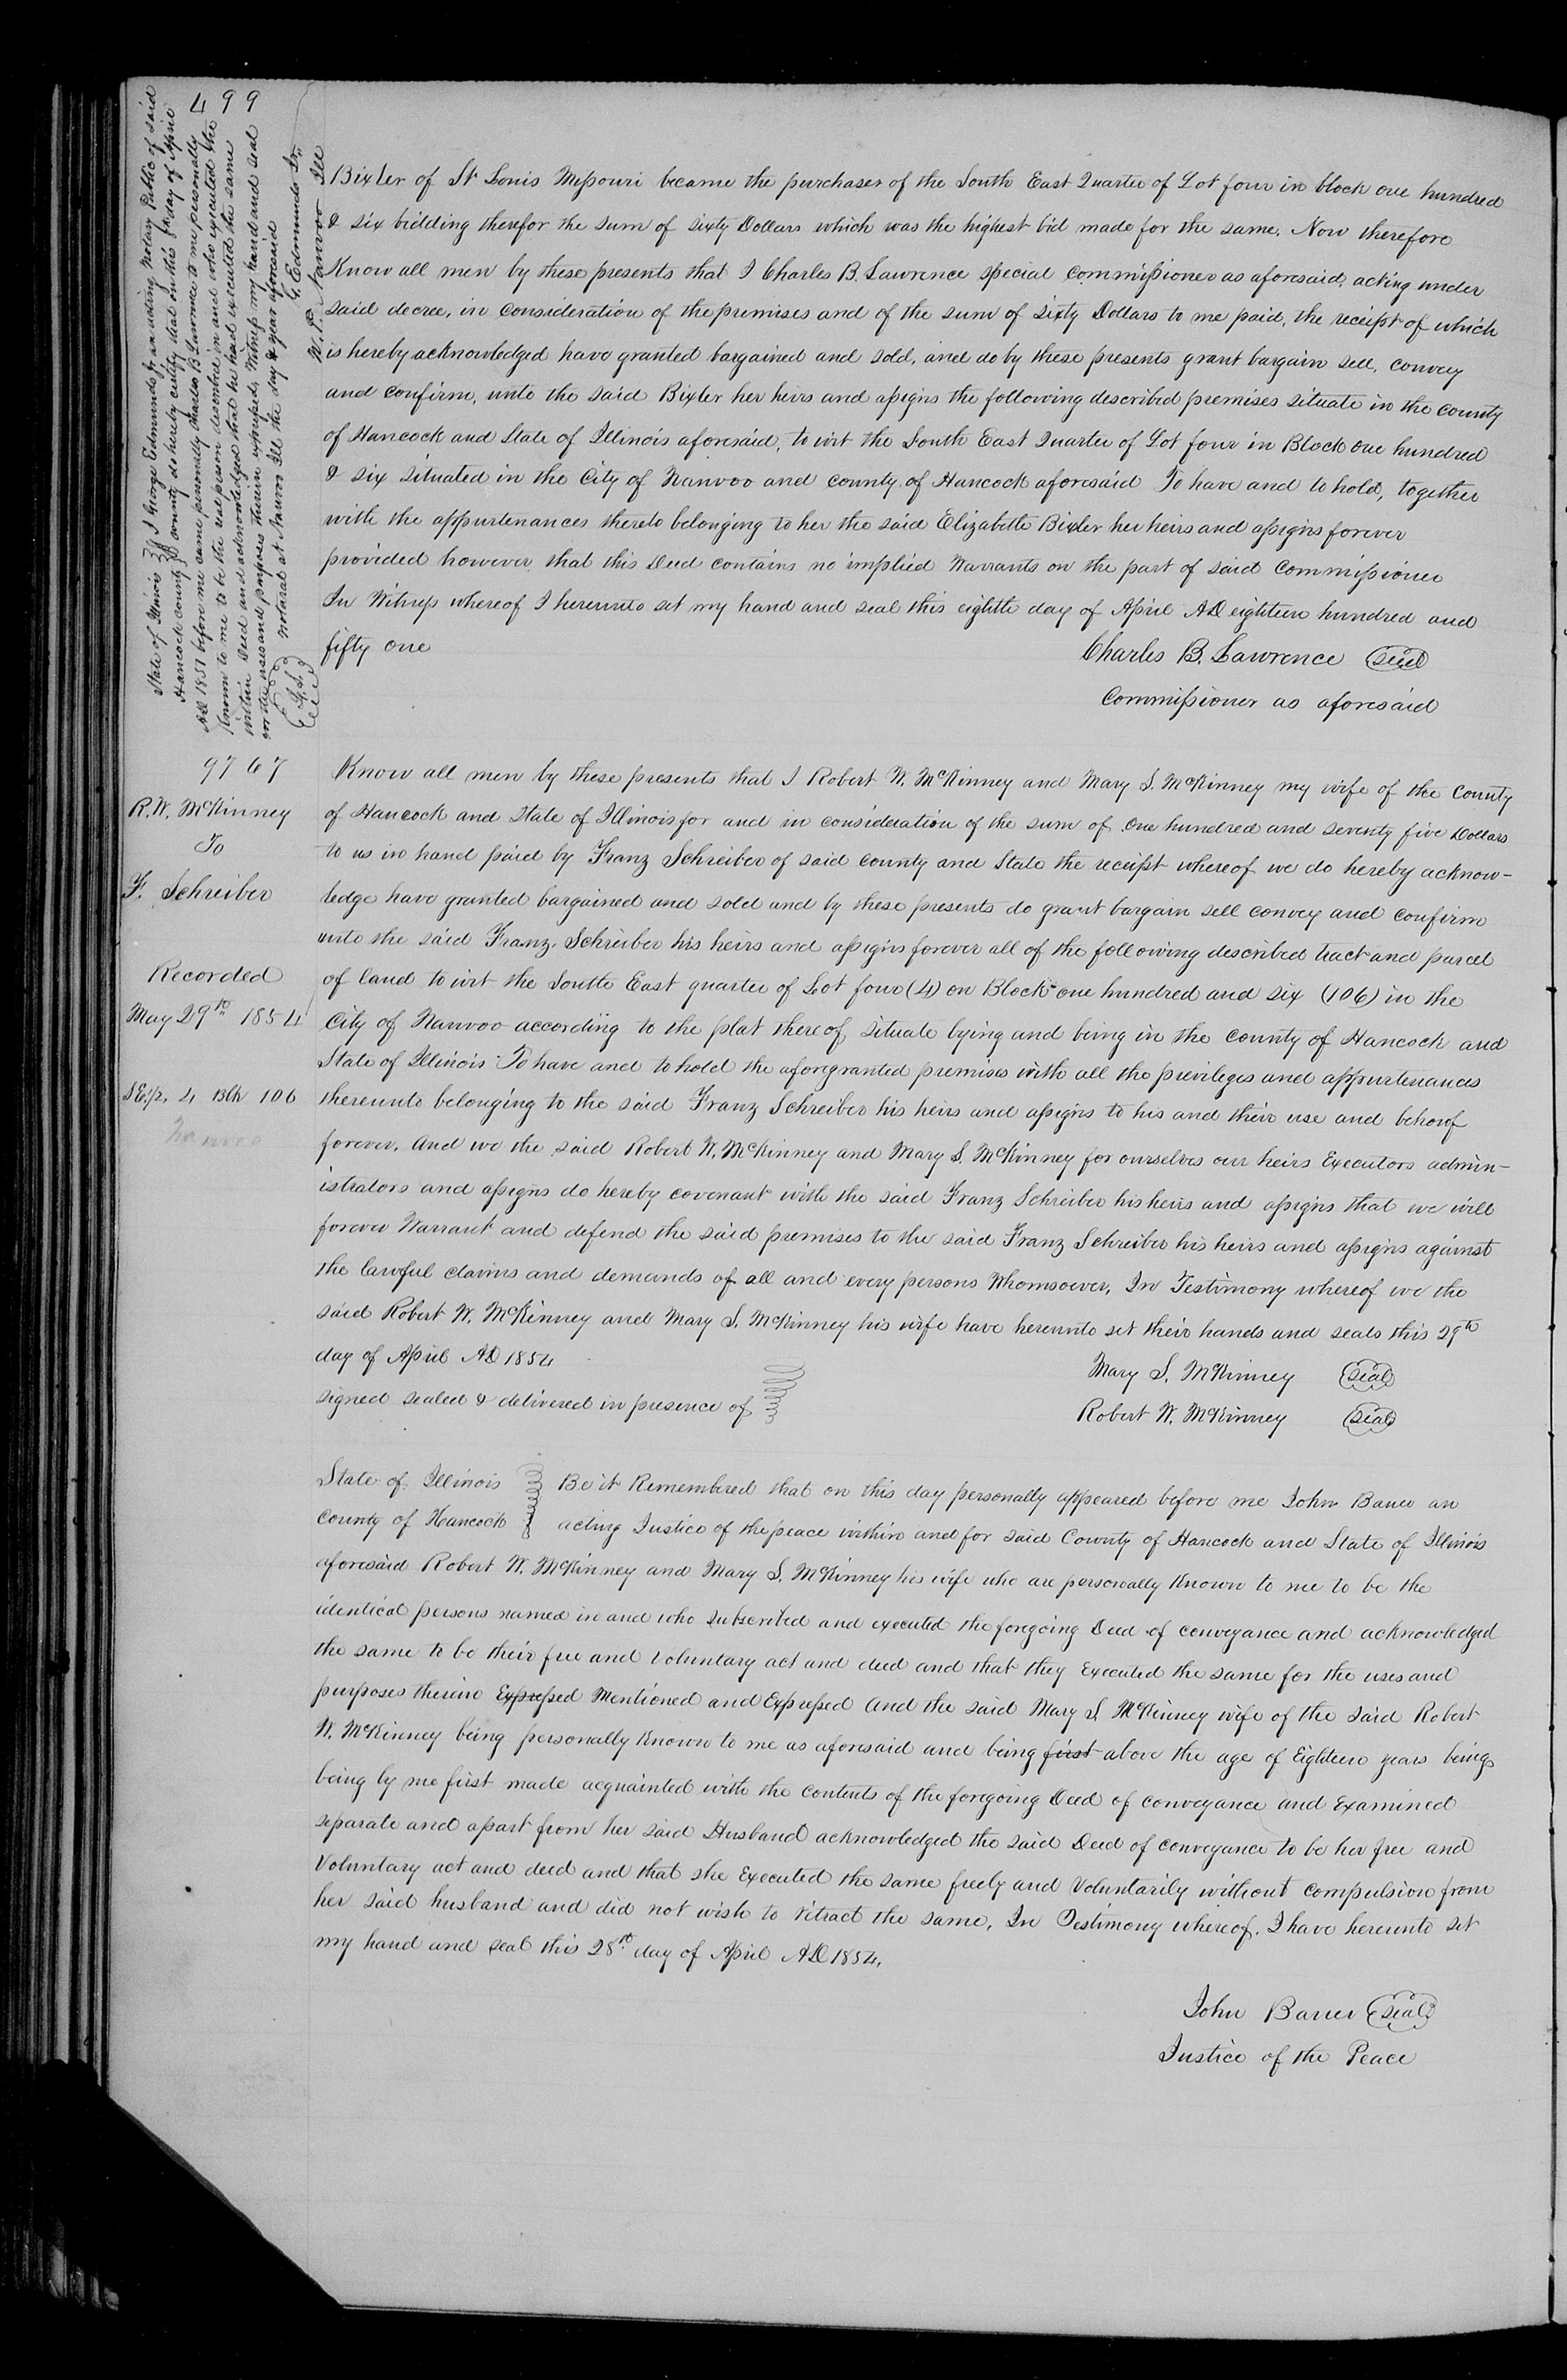 499
State of Illinois } I George Edmunds Jr an acting Notary Public of said
Hancock County } county do hereby certify that on this 8th day of April
AD 1851 before me came personally Charles B Lawrence to me personally
Known to me to be the real person described in and who executed the
within Deed and acknowledged that he had executed the same
for the uses and purposes therein expressed, Witness my hand and seal
L.S. notarial at Nauvoo Ill the day & year aforesaid
G. Edmunds Jr.
N. P. Nauvoo Ill
Bixler of St Louis Missouri became the purchaser of the South East Quarter of Lot four in block one hundred
& six bidding therefor the sum of sixty Dollars which was the highest bid made for the same. Now therefore
Know all men by these presents that I Charles B. Lawrence special commissioner as aforesaid, acting under
said decree, in consideration of the premises and of the sum of sixty Dollars to me paid, the receipt of which
is hereby acknowledged have granted bargained and sold, and do by these presents grant bargain sell, convey
and confirm, unto the said Bixler her heirs and assigns the following described premises situate in the county
of Hancock and State of Illinois aforesaid, to wit the South East Quarter of Lot four in Block one hundred
& six situated in the City of Nauvoo and county of Hancock aforesaid To have and to hold, together
with the appurtenances thereto belonging to her the said Elizabeth Bixler her heirs and assigns forever
provided however, that this Deed contains no implied Warrants on the part of said commissioner
In Witness whereof I hereunto set my hand and seal this eighth day of April AD eighteen hundred and
fifty one
Charles B. Lawrence (seal)
Commissioner as aforesaid
9767
R. W. McKinney
To
F. Schreiber
Recorded
May 29th 1854
SE1/4 4 Blk 106
Nauvoo
Know all men by these presents that I Robert W. McKinney and Mary S. McKinney my wife of the County
of Hancock and State of Illinois for and in consideration of the sum of One hundred and seventy five Dollars
to us in hand paid by Franz Schreiber of said county and State the receipt whereof we do hereby acknow-
ledge have granted bargained and sold and by these presents do grant bargain sell convey and confirm
unto the said Franz Schreiber his heirs and assigns forever all of the following described tract and parcel
of land to wit the South East quarter of Lot four (4) on Block one hundred and six (106) in the
City of Nauvoo according to the plat thereof, situate lying and being in the County of Hancock and
State of Illinois To have and to hold the aforegranted premises with all the privileges and appurtenances
thereunto belonging to the said Franz Schreiber his heirs and assigns to his and their use and behoof
forever, And we the said Robert W. McKinney and Mary S. McKinney for ourselves our heirs Executors admin-
istrators and assigns do hereby covenant with the said Franz Schreiber his heirs and assigns that we will
forever Warrant and defend the said premises to the said Franz Schreiber his heirs and assigns against
the lawful claims and demands of all and every persons Whomsoever, In Testimony whereof we the
said Robert W. McKinney and Mary S. McKinney his wife have hereunto set their hands and seals this 29th
day of April AD 1854
signed sealed & delivered in presence of
Mary S. McKinney (seal)
Robert W. McKinney (seal)
State of Illinois } Be it Remembered that on this day personally appeared before me John Bauer an
County of Hancock } acting Justice of the peace within and for said County of Hancock and State of Illinois
aforesaid Robert W. McKinney and Mary S. McKinney his wife who are personally Known to me to be the
identical persons named in and who subscribed and executed the foregoing Deed of conveyance and acknowledged
the same to be their free and Voluntary act and deed and that they Executed the same for the uses and
purposes therein Expressed Mentioned and Expressed And the said Mary S. McKinney wife of the said Robert
W. McKinney being personally Known to me as aforesaid and being first above the age of Eighteen years being
being by me first made acquainted with the contents of the foregoing Deed of conveyance and Examined
separate and apart from her said Husband acknowledged the said Deed of conveyance to be her free and
Voluntary act and deed and that she Executed the same freely and Voluntarily without compulsion from
her said husband and did not wish to retract the same, In Testimony whereof, I have hereunto set
my hand and seal this 28th day of April AD 1854,
John Bauer (seal)
Justice of the Peace